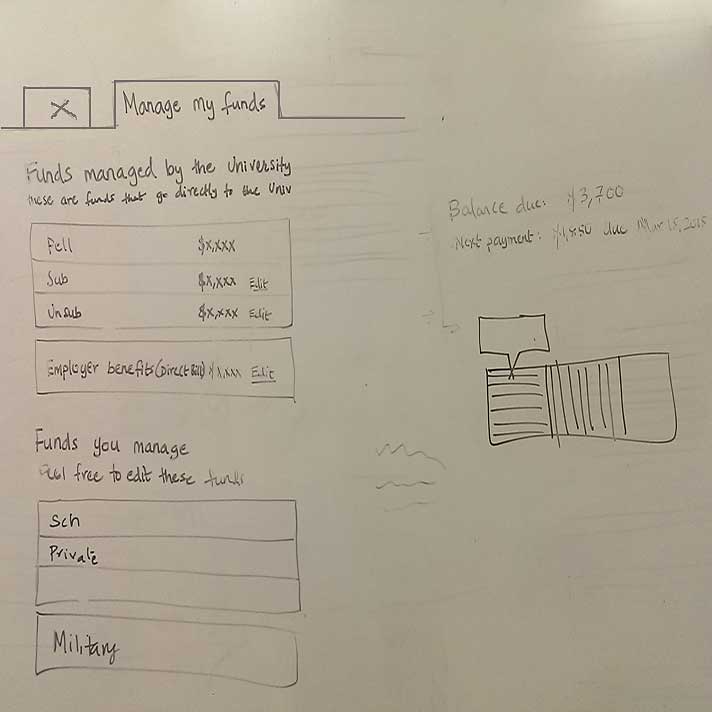 X
Manage my funds
Funds managed by the University
these are funds that go directly to the Univ
Pell $x,xxx
Sub $x,xxx Edit
Unsub $x,xxx Edit
Employer benefits (Direct Bill) $x,xxx Edit
Funds you manage
Feel free to edit these funds
Sch
Private
Military
Balance due: $3,700
Next payment: $1,850 due Mar 15, 2015